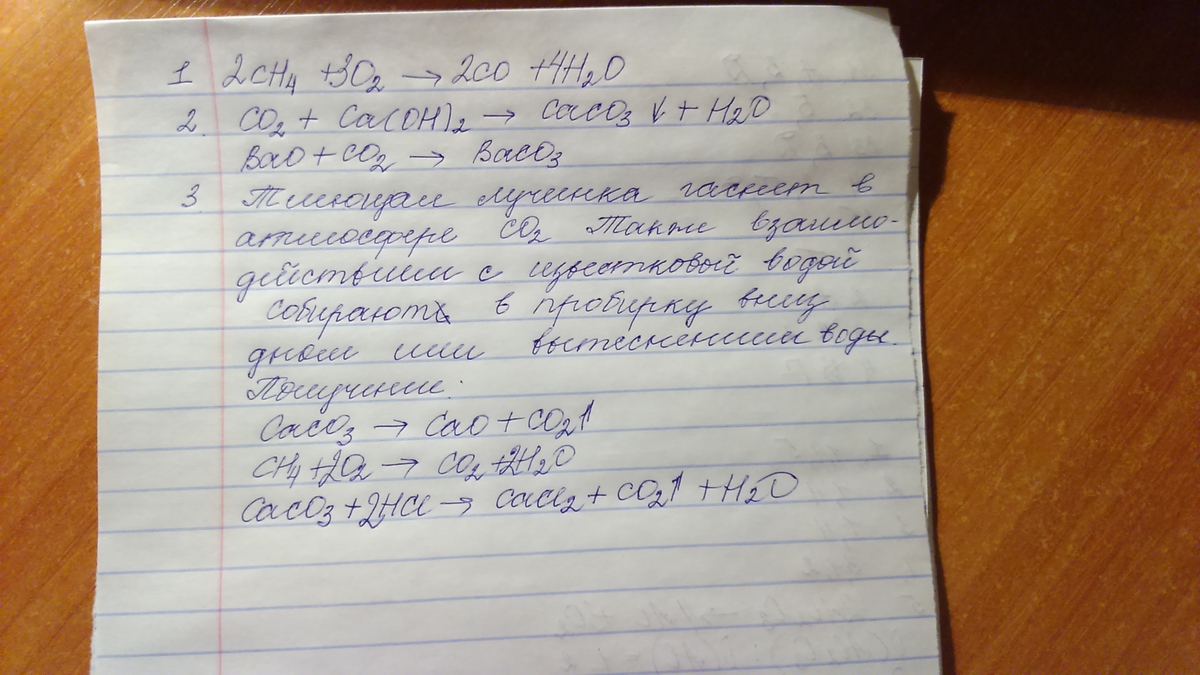 1 2CH₄ + 3O₂ → 2CO + 4H₂O
2. CO₂ + Ca(OH)₂ → CaCO₃ ↓ + H₂O
BaO + CO₂ → BaCO₃
3. Тлеющая лучинка гаснет в
атмосфере CO₂ Также взаимо-
действием с известковой водой
собирают в пробирку вниз
дном или вытеснением воды.
Получение:
CaCO₃ → CaO + CO₂↑
CH₄ + 2O₂ → CO₂ + 2H₂O
CaCO₃ + 2HCl → CaCl₂ + CO₂↑ + H₂O